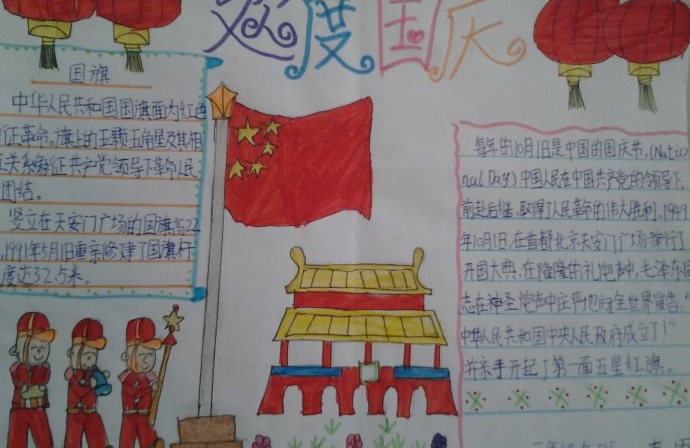 欢度国庆
国旗
中华人民共和国国旗面为红色
征革命。旗上的五颗五角星及其相
关系象征共产党领导下革命人民
团结。
竖立在天安门广场的国旗高22
1991年5月1日重新修建了国旗杆
度达32.5米。
每年的10月1日是中国的国庆节,(Natio
nal Day)中国人民在中国共产党的领导下,
前赴后继,取得了人民革命的伟大胜利。1949
年10月1日,在首都北京天安门广场举行了
开国大典,在隆隆的礼炮声中,毛泽东同
志在神圣炮声中庄严地向全世界宣告"
中华人民共和国中央人民政府成立了!"
并亲手升起了第一面五星红旗。